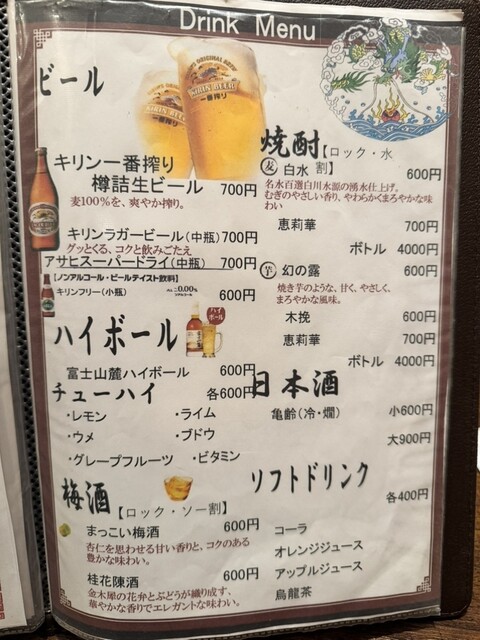 Drink Menu
ビール
キリン一番搾り
樽詰生ビール 700円
麦100%を、爽やか搾り。
キリンラガービール(中瓶)700円
グッとくる、コクと飲みごたえ
アサヒスーパードライ(中瓶)700円
【ノンアルコール・ビールテイスト飲料】
キリンフリー(小瓶) 0.00% 600円
ハイボール
ハイボール
富士山麓ハイボール 600円
チューハイ 各600円
・レモン ・ライム
・ウメ ・ブドウ
・グレープフルーツ ・ビタミン
梅酒【ロック・ソー割】
まっこい梅酒 600円
杏仁を思わせる甘い香りと、コクのある
豊かな味わい。
桂花陳酒 600円
金木犀の花弁とぶどうが織り成す、
華やかな香りでエレガントな味わい。
焼酎【ロック・水割】
麦 白水 600円
名水百選白川水源の湧水仕上げ。
むぎのやさしい香り、やわらかくまろやかな味
わい
恵莉華 700円
ボトル 4000円
芋 幻の露 600円
焼き芋のような、甘く、やさしく、
まろやかな風味。
木挽 600円
恵莉華 700円
ボトル 4000円
日本酒
亀齢(冷・燗) 小600円
大900円
ソフトドリンク
各400円
コーラ
オレンジジュース
アップルジュース
烏龍茶